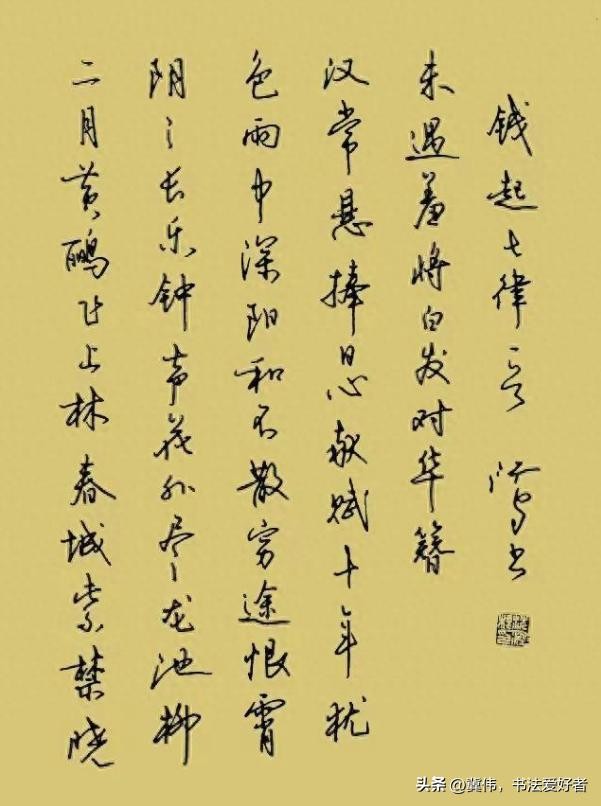 二月黄鹂飞上林春城紫禁晓
阴々长乐钟声花外尽龙池柳
色雨中深阳和不散穷途恨霄
汉常悬捧日心献赋十年犹
未遇羞将白发对华簪
钱起七律一首 书
头条 @冀伟，书法爱好者